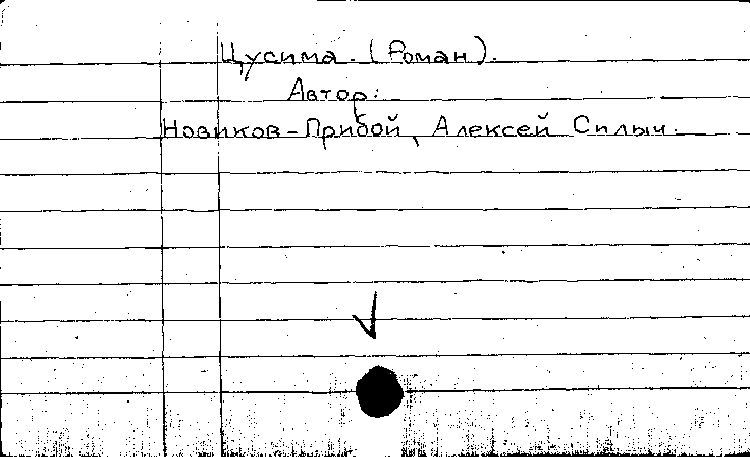 Цусима. (Роман).
Автор:
Новиков-Прибой, Алексей Силыч.